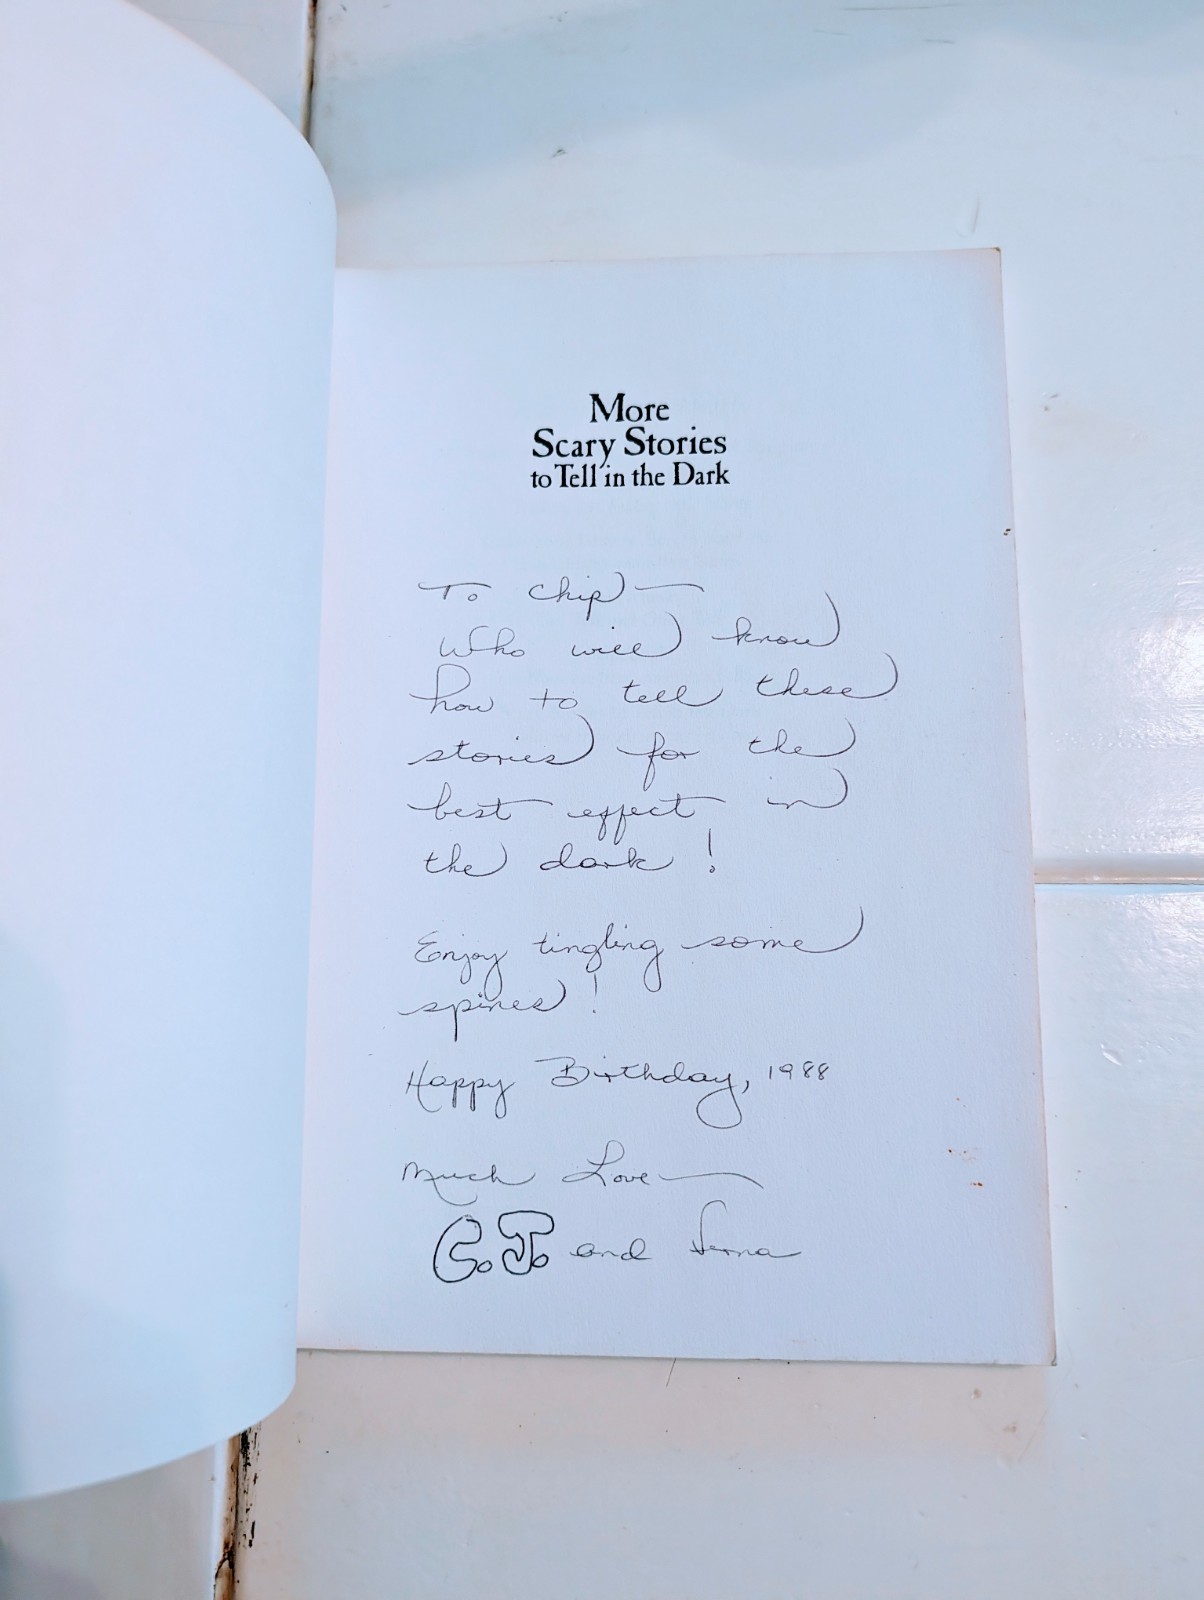 More
Scary Stories
to Tell in the Dark
To Chip —
Who will know
how to tell these
stories for the
best effect in
the dark!
Enjoy tingling some
spines!
Happy Birthday, 1988
Much Love —
C.J. and Verna